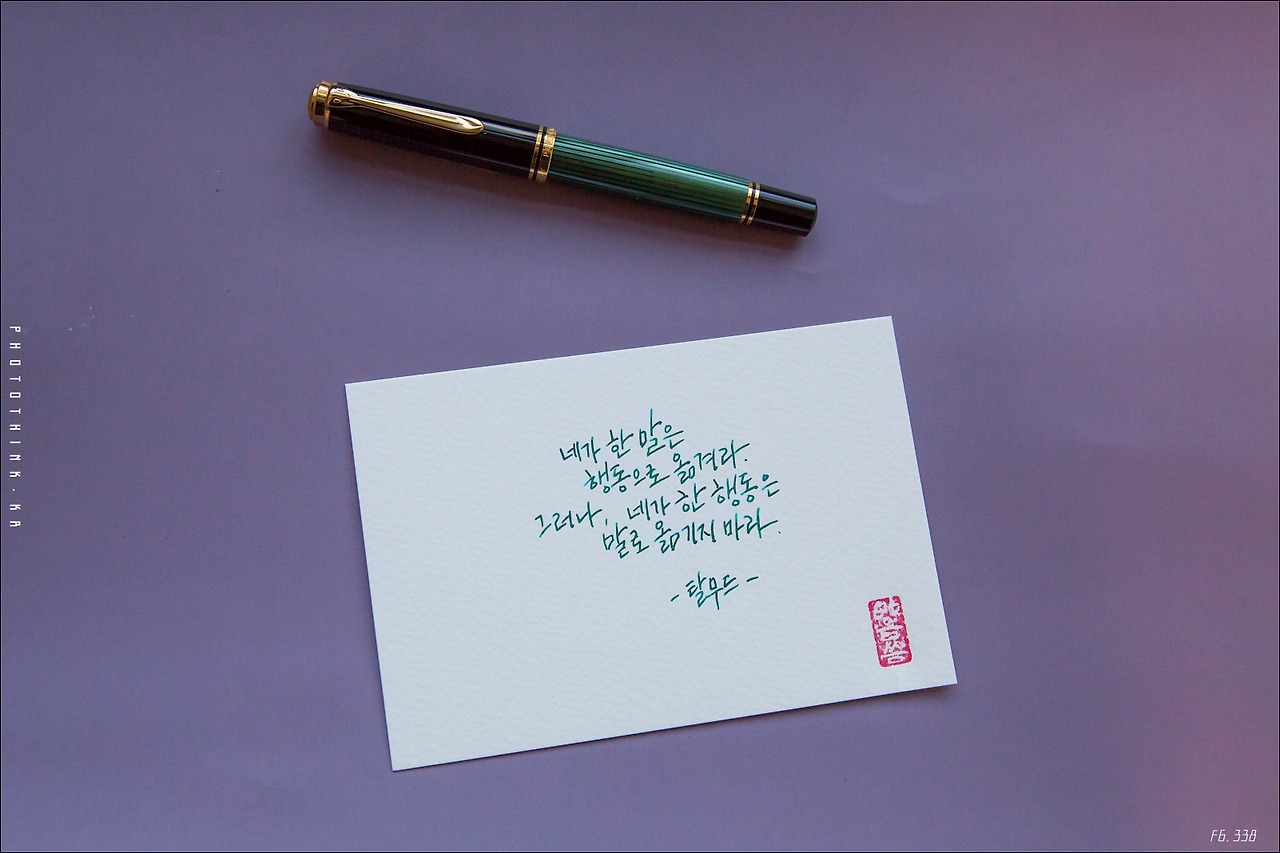 네가 한 말은
행동으로 옮겨라.
그러나, 네가 한 행동은
말로 옮기지 마라.
- 탈무드 -
PHOTOTHINK.KR
FG.338